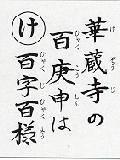 華蔵寺の
けぞうじ
百庚申は
ひゃくこうしん
百字百様
ひゃくじひゃくよう
け